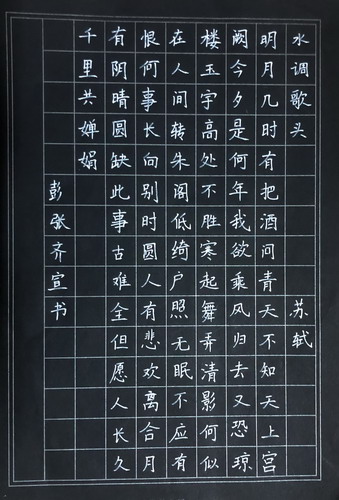 水调歌头 苏轼
明月几时有把酒问青天不知天上宫
阙今夕是何年我欲乘风归去又恐琼
楼玉宇高处不胜寒起舞弄清影何似
在人间转朱阁低绮户照无眠不应有
恨何事长向别时圆人有悲欢离合月
有阴晴圆缺此事古难全但愿人长久
千里共婵娟
彭张齐宣书